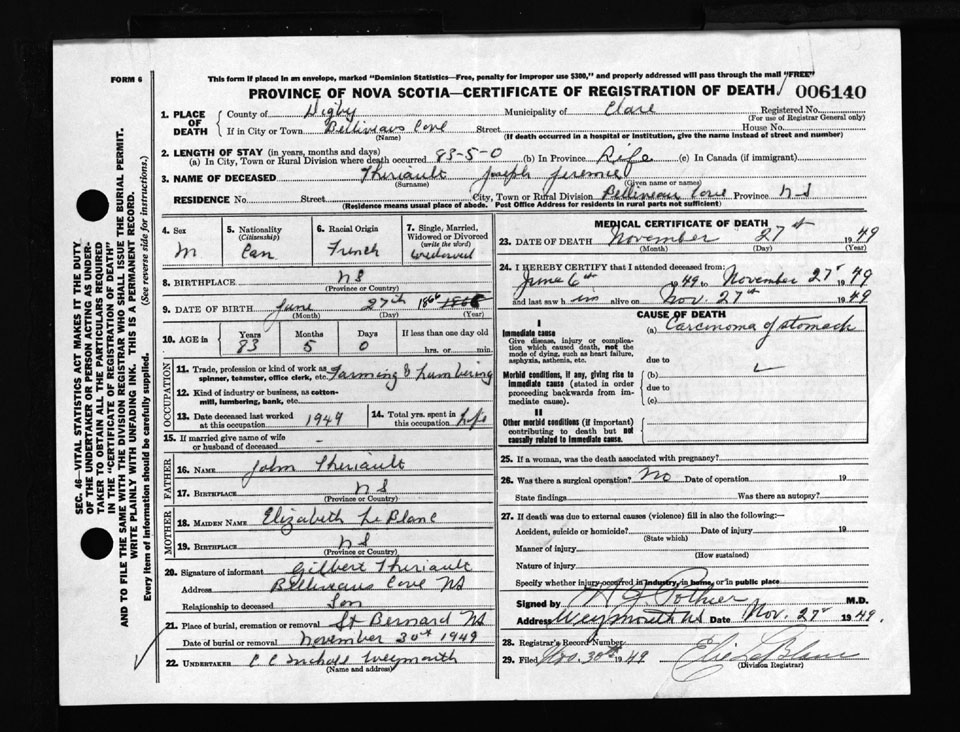 FORM 6
This form if placed in an envelope, marked "Dominion Statistics—Free, penalty for improper use $300," and properly addressed will pass through the mail "FREE"
PROVINCE OF NOVA SCOTIA—CERTIFICATE OF REGISTRATION OF DEATH 006140
1. PLACE OF DEATH County of Digby Municipality of Clare Registered No.
(For use of Registrar General only)
If in City or Town Belliveaus Cove Street House No.
(Name) (If death occurred in a hospital or institution, give the name instead of street and number)
2. LENGTH OF STAY (in years, months and days)
(a) In City, Town or Rural Division where death occurred 83-5-0 (b) In Province Life (c) In Canada (if immigrant)
3. NAME OF DECEASED Theriault Joseph Jeremie
(Surname) (Given name or names)
RESIDENCE No. Street City, Town or Rural Division Belliveau Cove Province NS
(Residence means usual place of abode. Post Office Address for residents in rural parts not sufficient)
4. Sex M
5. Nationality (Citizenship) Can
6. Racial Origin French
7. Single, Married, Widowed or Divorced (write the word) Widowed
8. BIRTHPLACE NS
(Province or Country)
9. DATE OF BIRTH June 27th 1866
(Month) (Day) (Year)
10. AGE in Years Months Days If less than one day old
83 5 0 hrs. or min.
OCCUPATION
11. Trade, profession or kind of work as spinner, teamster, office clerk, etc. Farming & Lumbering
12. Kind of industry or business, as cotton-mill, lumbering, bank, etc.
13. Date deceased last worked at this occupation 1949
14. Total yrs. spent in this occupation Life
15. If married give name of wife or husband of deceased -
FATHER
16. NAME John Theriault
17. BIRTHPLACE NS
(Province or Country)
MOTHER
18. MAIDEN NAME Elizabeth LeBlanc
19. BIRTHPLACE NS
(Province or Country)
20. Signature of informant Gilbert Theriault
Address Belliveaus Cove NS
Relationship to deceased Son
21. Place of burial, cremation or removal St Bernard NS
Date of burial or removal November 30th 1949
22. UNDERTAKER Weymouth
(Name and address)
MEDICAL CERTIFICATE OF DEATH
23. DATE OF DEATH November 27th 1949
(Month) (Day) (Year)
24. I HEREBY CERTIFY that I attended deceased from:
June 6th 1949 to November 27 1949
and last saw h im alive on Nov. 27th 1949
CAUSE OF DEATH
I
Immediate cause (a) Carcinoma of stomach
Give disease, injury or complication which caused death, not the mode of dying, such as heart failure, asphyxia, asthenia, etc.
due to
Morbid conditions, if any, giving rise to immediate cause (stated in order proceeding backwards from immediate cause).
(b)
due to
(c)
II
Other morbid conditions (if important) contributing to death but not causally related to immediate cause.
25. If a woman, was the death associated with pregnancy?
26. Was there a surgical operation? No Date of operation 19
State findings Was there an autopsy?
27. If death was due to external causes (violence) fill in also the following:—
Accident, suicide or homicide? Date of injury 19
(State which)
Manner of injury
(How sustained)
Nature of injury
Specify whether injury occurred in industry, in home, or in public place
Signed by Pothier M.D.
Address Weymouth NS Date Nov. 27 1949.
28. Registrar's Record Number
29. Filed Nov. 30th 1949 LeBlanc
(Division Registrar)
SEC. 46—VITAL STATISTICS ACT MAKES IT THE DUTY
OF THE UNDERTAKER OR PERSON ACTING AS UNDER-
TAKER TO OBTAIN ALL THE PARTICULARS REQUIRED
IN THE "CERTIFICATE OF REGISTRATION OF DEATH"
AND TO FILE THE SAME WITH THE DIVISION REGISTRAR WHO SHALL ISSUE THE BURIAL PERMIT.
WRITE PLAINLY WITH UNFADING INK. THIS IS A PERMANENT RECORD.
Every item of information should be carefully supplied. (See reverse side for instructions.)